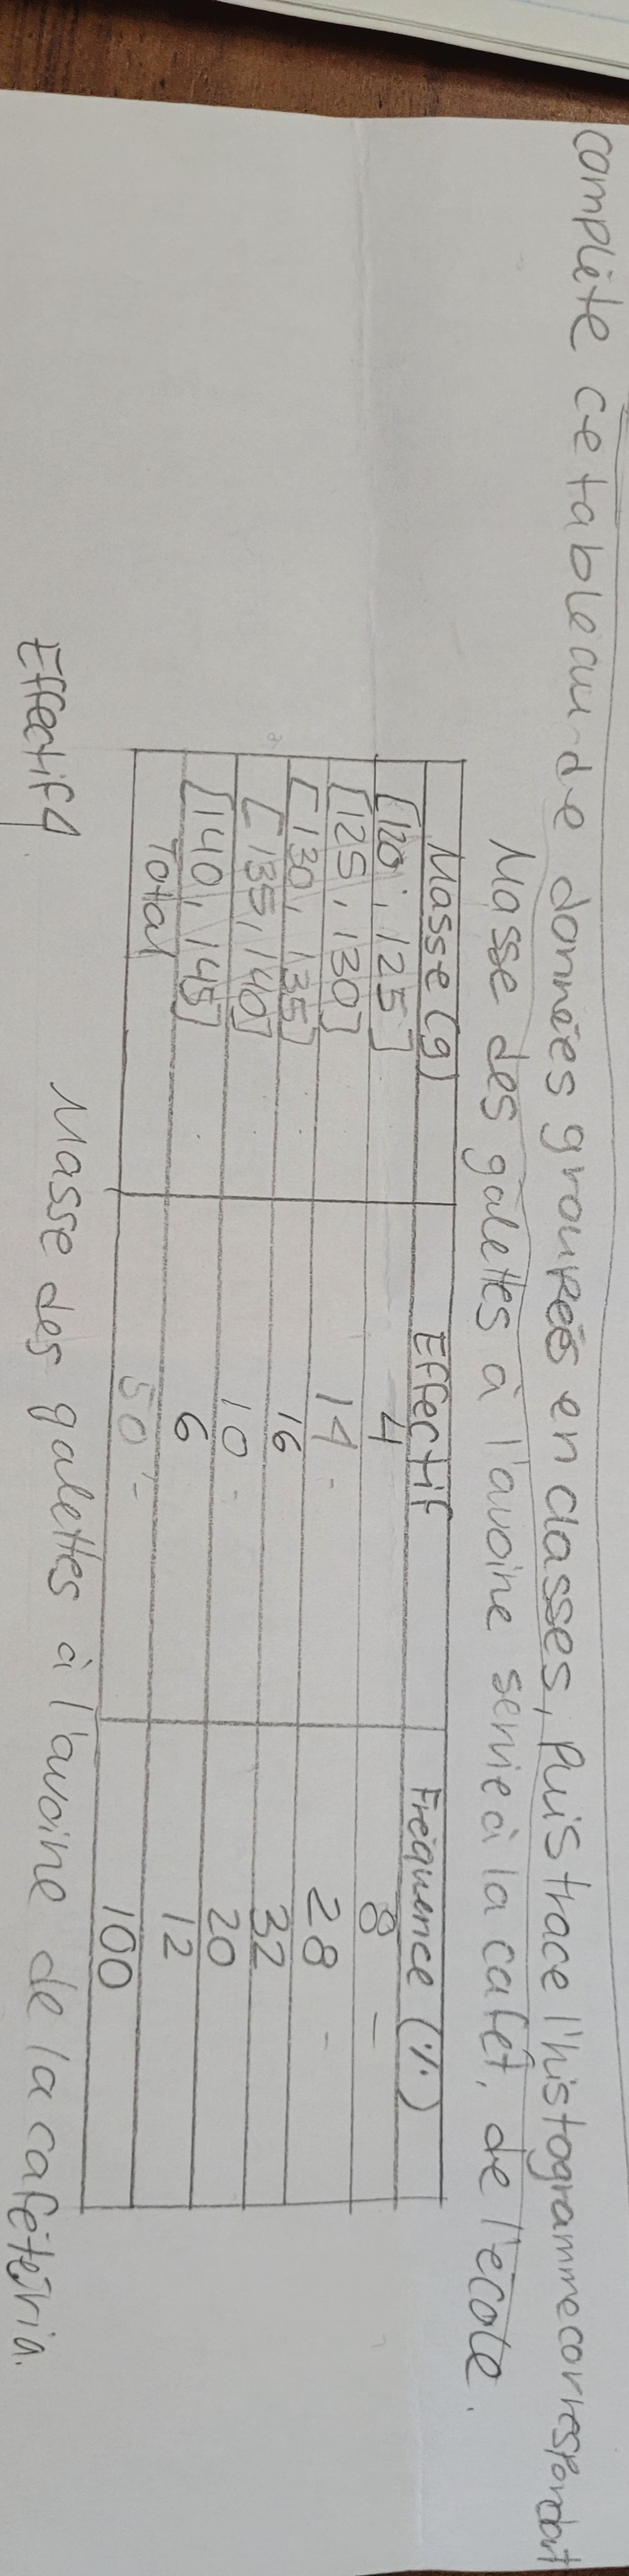 complète ce tableau de données groupées en classes, Puis trace l'histogramme correspondant
Masse des galettes à l'avoine servie à la cafét. de l'école.
Masse (g) Effectif Fréquence (%)
[120, 125[ 4 8
[125, 130[ 14 28
[130, 135[ 16 32
[135, 140[ 10 20
[140, 145[ 6 12
Total 50 100
Masse des galettes à l'avoine de la cafétéria.
Effectif